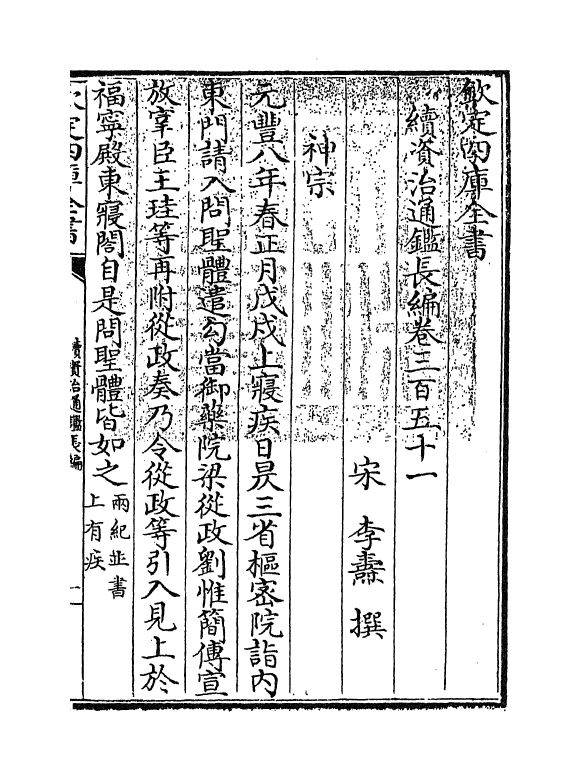 欽定四庫全書
續資治通鑑長編卷三百五十一
宋 李燾 撰
神宗
元豐八年春正月戊戌上寢疾日昃三省樞密院詣内
東門請入問聖體遣勾當御藥院梁從政劉惟簡傳宣
放宰臣王珪等再附從政奏乃令從政等引入見上於
福寧殿東寢閣自是問聖體皆如之兩紀並書
上有疾
欽定四庫全書
續資治通鑑長編
一